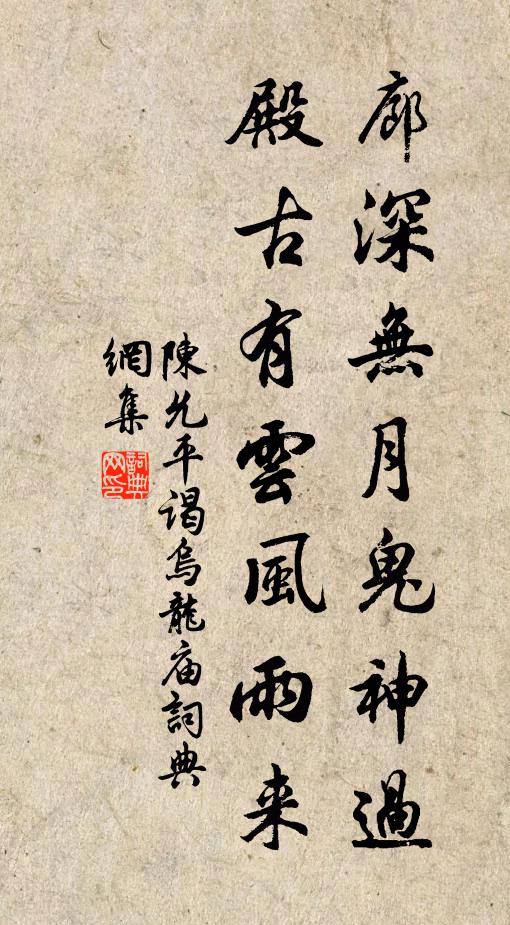 廊深無月鬼神過
殿古有雲風雨来
陳允平謁烏龍庙詞典
網集
詞典網印